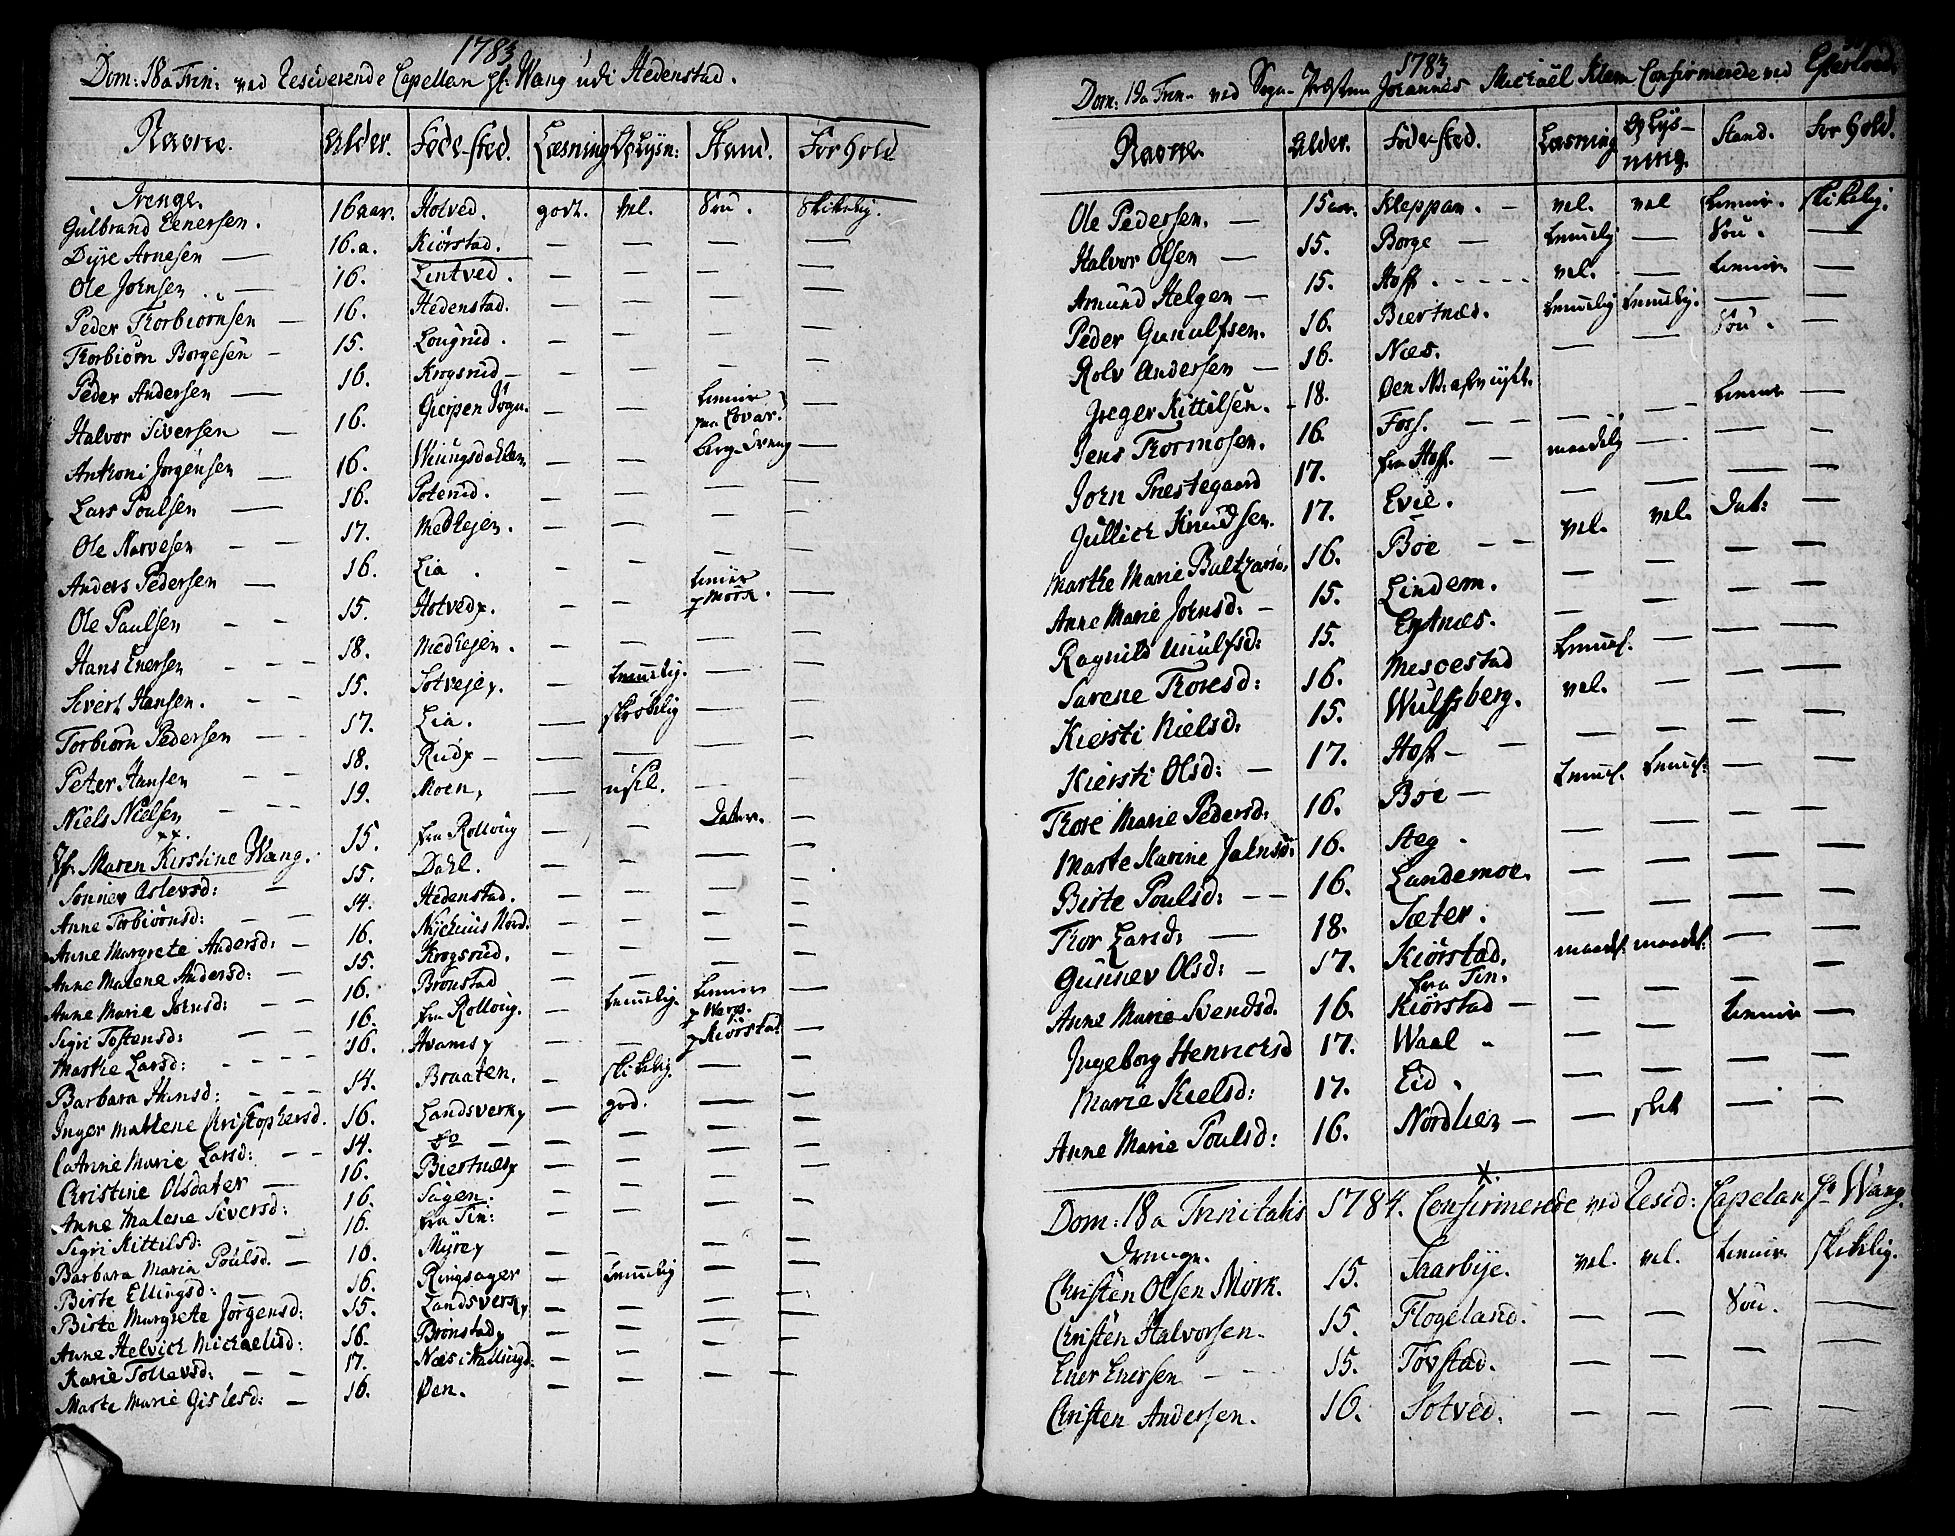 1783
Dom: 18 a Trin: ved Residerende Capellan Hr: Wang udi Hedenstad.
Navne. Alder. Føde-sted. Læsning Oplysn: Stand. Forhold
Drenge.
Gulbrand Eenersen. 16 aar. Hotved. godt. vel. Søn. Skikelig.
Dyre Arnesen — 16. a. Kiörstad. — — — —
Ole Johnsen — 16. Lintved. — — — —
Peder Thorbiörnsen — 16. Hedenstad. — — — —
Thorbiörn Borgesen — 15. Lougrud. — — — —
Peder Andersen — 16. Krogsrud — — — — —
Halvor Siversen — 16. Gierpen Sogn. — — tienner paa Lovar.
Anthoni Jörgensen — 16. Wiungsdahlen — — berg-Dreng —
Lars Poulsen — 16. Poterud. — — — —
Ole Narvesen — — 17. Medhejen. — — — —
Anders Pedersen — 16. Lia. — — — —
Ole Paulsen — — 15. Hotved — — tienner Mörk. —
Hans Enersen — — — 18. Medhejen. — — — —
Sivert Hansen. — — 15. Sotveje. — temmelig. — —
Torbiörn Pedersen — — 17. Lia. — skröbelig — —
Peter Hansen — — 18. Rud — — — —
Niels Nielsen — — — 19. Moen — usel. — —
Jfr. Maren Kirstine Wang. 15. fra Rolloug — — Dater. —
Sönnev Aslevsd: — 15. Dahl. — — — —
Anne Torbiörnsd: — — 14. Hedenstad. — — — —
Anne Margrete Andersd: — 16. Nyehuus Nord: — — — —
Anne Malene Andersd: — 15. Krogsrud. — — — —
Anne Marie Johnsd: — — 16. Brönstad — — — —
Sigri Tostensd: — — 16. fra Rolloug. — temmelig. tienner Warp. —
Marthe Larsd: — — — 16. Hvams — — Kiörstad —
Barbara Hansd: — — — 14. Braaten. — skikelig. — —
Inger Mallene Christophersd. 16. Landsverk — god. — —
CaAnne Marie Larsd: — — 14. do — — — — —
Christine Olsdater — 16. Biertnes — — — —
Anne Malene Siversd: 16. Sagen. — — — —
Sigri Kittilsd: — 16. fra Tin: — — — —
Barbara Maria Poulsd. — 16. Myre — — — —
Birte Ellingsd: — 16. Ringsager — temmelig — —
Birte Margrete Jörgensd: 15. Landsverk — — — —
Anne Helvich Michaelsd: 16. Brönstad — — — —
Karie Tollevsd: — — 17. Næs i Hallingd: — — — —
Marte Marie Gislesd: — 16. Øen. — — — —
1783
Dom: 19 a Trin- ved Sogne-Præsten Johannes Michaël Klem Confirmerede ved Efteslöud
Navne. Alder. Föde-sted. Læsning Oplysning. Stand. Forhold.
Ole Pedersen. — 15 aar. Kleppan. — vel. vel tienner. skikelig.
Halvor Olsen — 15. Borge — temmelig — Sön. —
Amund Helgen — 15. Hoff. — — vel. — tienner —
Peder Gunulfsen. 16. Biertnæs. temmelig temmelig. — —
Rolv Andersen — 16. Næs. — — Sön. —
Greger Kittilsen. — 18. Øen
Jens Thormosen. 16. Foss. — — — — tienner —
Jorn Prestegaard 17. fra Hoff. — maadelig — — —
Jullich Knudsen. 17. Evie. — — — —
Marthe Marie Baltzars. 16. Böe — — vel. vel. Dat: —
Anne Marie Johnsd: — 15. Lindem. — — — —
Ragnild Unulfsd: 15. Entnæs. — — — —
Sarene Thoresd: 16. Mescestad temmel. — — —
Kiersti Nielsd: 15. Wulfsberg. vel. — — —
Kiersti Olsd: — 17. Hoff — — — — —
Thore Marie Pedersd: 16. Böe — temmel. temmel: — —
Marte Karine Jahnsd: 16. Steg. — — — —
Birte Poulsd: — — 16. Landemoe. — — — —
Thor Larsd: — 18. Sæter. — — — —
Gunnev Olsd: — 17. Kiörstad. maadel: maadel: — —
Anne Marie Svendsd. 16. fra Tin. Kiörstad — — — — —
Ingeborg Henrichsd 17. Waal — — tienner —
Marie Kielsd: 17. Eid. — — — —
Anne Marie Poulsd: 16. Nordlien — — slet — —
Dom: 18 a Trinitatis 1784. Confirmerede ved Resid: Capelan Hr Wang.
Drenge.
Christen Olsen Mörk. 15. Saarbye. vel. vel. tienner skikelig.
Christen Halvorsen. 15. Flogeland. — — Sön. —
Ener Enersen — — 15. Tovstad. — — — —
Christen Andersen. 16. Sotved. — — — —